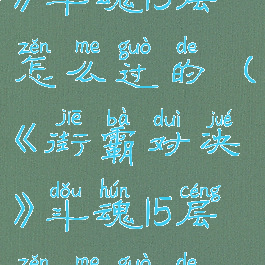 》斗魂15层
zěn me guò de
怎么过的（
jiē bà duì jué
《街霸对决
dǒu hún céng
》斗魂15层
zěn me guò de